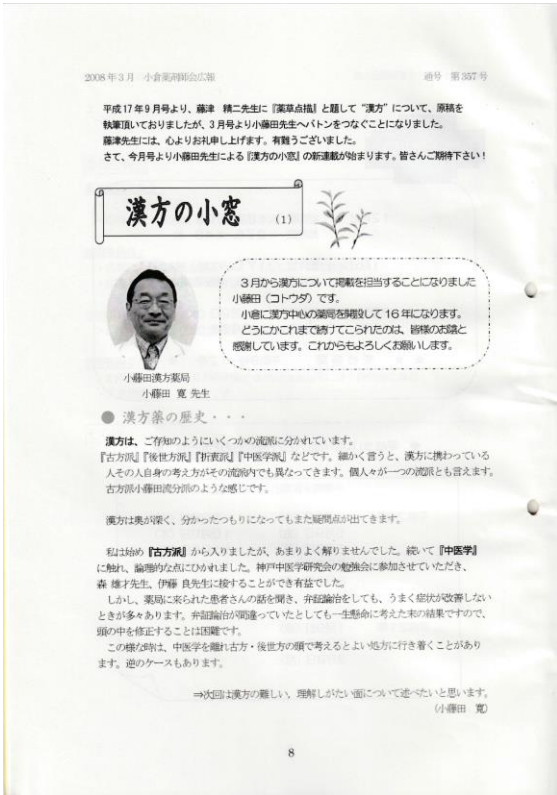 2008年3月　小倉薬剤師会広報
通号　第357号
平成17年9月号より、藤津　精二先生に『薬草点描』と題して“漢方”について、原稿を
執筆頂いておりましたが、3月号より小藤田先生へバトンをつなぐことになりました。
藤津先生には、心よりお礼申し上げます。有難うございました。
さて、今月号より小藤田先生による『漢方の小窓』の新連載が始まります。皆さんご期待下さい！
漢方の小窓　（1）
3月から漢方について掲載を担当することになりました
小藤田（コトウダ）です。
小倉に漢方中心の薬局を開設して16年になります。
どうにかこれまで続けてこられたのは、皆様のお陰と
感謝しています。これからもよろしくお願いします。
小藤田漢方薬局
小藤田　寛　先生
● 漢方薬の歴史・・・
漢方は、ご存知のようにいくつかの流派に分かれています。
『古方派』『後世方派』『折衷派』『中医学派』などです。細かく言うと、漢方に携わっている
人その人自身の考え方がその流派内でも異なってきます。個人々が一つの流派とも言えます。
古方派小藤田流分派のような感じです。
漢方は奥が深く、分かったつもりになってもまた疑問点が出てきます。
私は始め『古方派』から入りましたが、あまりよく解りませんでした。続いて『中医学』
に触れ、論理的な点にひかれました。神戸中医学研究会の勉強会に参加させていただき、
森　雄才先生、伊藤　良先生に接することができ有益でした。
しかし、薬局に来られた患者さんの話を聞き、弁証論治をしても、うまく症状が改善しない
ときが多々あります。弁証論治が間違っていたとしても一生懸命に考えた末の結果ですので、
頭の中を修正することは困難です。
この様な時は、中医学を離れ古方・後世方の頭で考えるとよい処方に行き着くことがあり
ます。逆のケースもあります。
⇒次回は漢方の難しい，理解しがたい面について述べたいと思います。
（小藤田　寛）
8